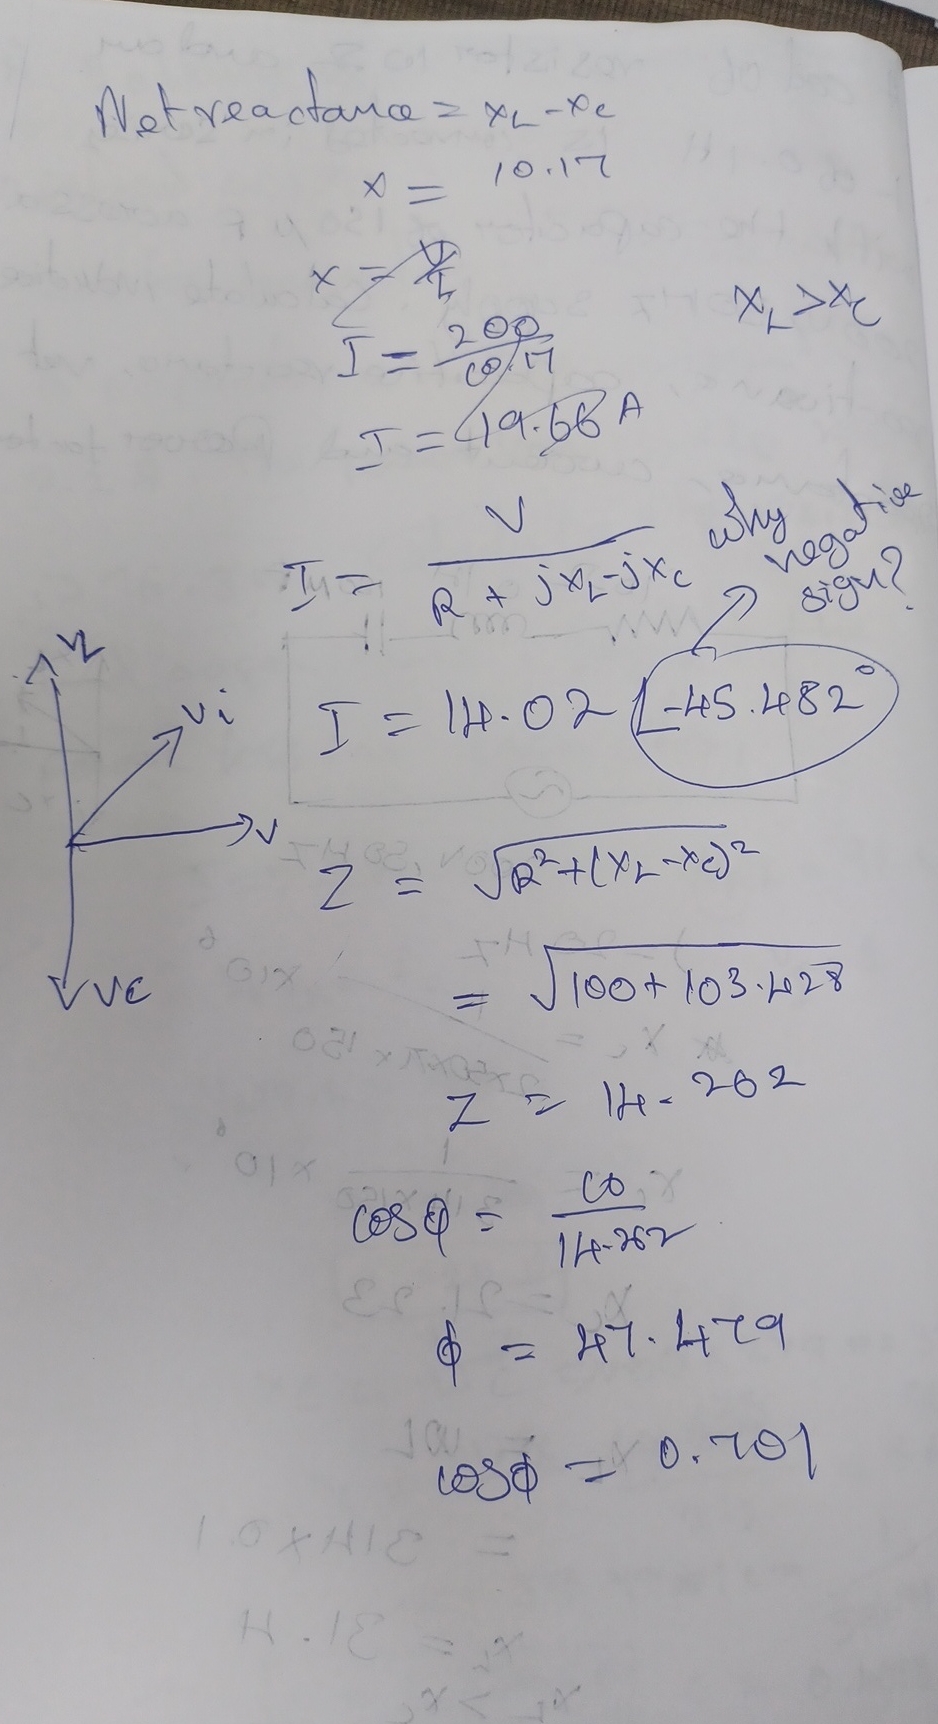 Net reactance = xL - xc
x = 10.17
x = V/I
xL > xc
I = 200/10.17
I = 19.66 A
I = V / R + jxL - jxc
why negative sign?
I = 14.02 ∠-45.482°
VL
Vi
V
VC
Z = √R² + (xL - xc)²
= √100 + 103.428
Z = 14.262
cosϕ = 10/14.262
ϕ = 47.479
cosϕ = 0.701